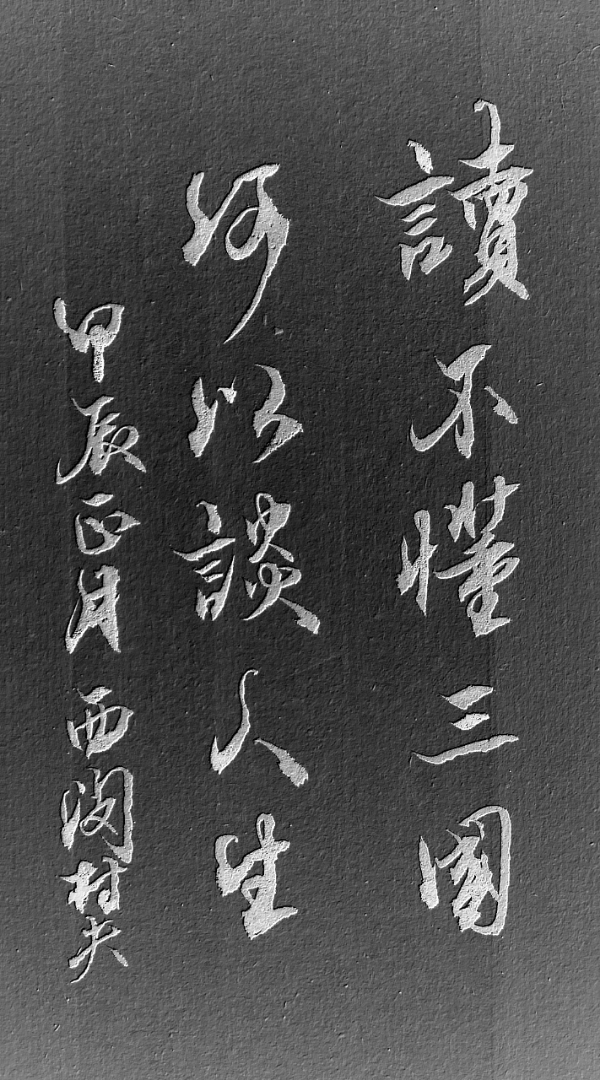 讀不懂三國
何以談人生
甲辰正月 西澗村夫